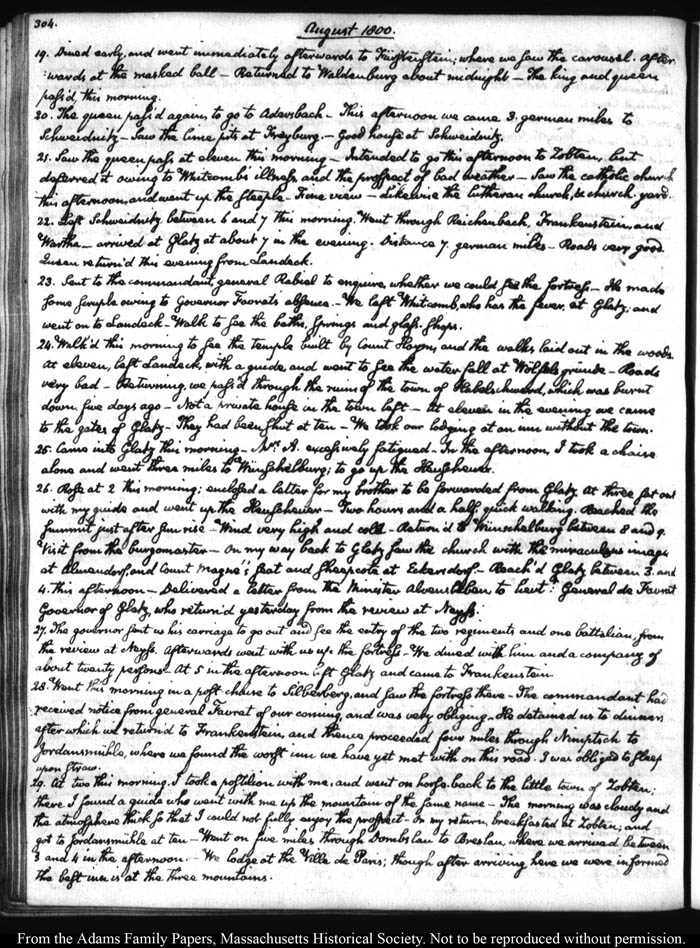 304.
August 1800.
19. Dined early, and went immediately afterwards to Fürstenstein; where we saw the carousel. After
wards at the masked ball — Returned to Waldenburg about midnight — The king and queen
pass'd, this morning.
20. The queen pass'd again, to go to Adersbach — This afternoon we came 3. german miles to
Schweidnitz — Saw the lime pits at Freyburg. — Good house at Schweidnitz.
21. Saw the queen pass at eleven this morning — Intended to go this afternoon to Zobten, but
deferred it owing to Whitcomb's illness, and the prospect of bad weather — Saw the catholic church
this afternoon, and went up the steeple. Fine view — Likewise the lutheran church, & church-yard.
22. Left Schweidnitz between 6 and 7 this morning. Went through Reichenbach, Frankenstein, and
Wartha — arrived at Glatz at about 7 in the evening. Distance 7. german miles — Roads very good.
return'd this evening from Landeck.
23. Sent to the commandant, general Rabiel to enquire, whether we could see the fortress — He made
some scruple owing to Governor Favrat's absence — We left Whitcomb, who has the fever, at Glatz; and
went on to Landeck — Walk to see the baths, springs and glass-shops.
24. Walk'd this morning to see the temple built by Count Hoym, and the walks laid out in the woods.
At eleven, left Landeck, with a guide, and went to see the water fall at Wölfelsgrunde — Roads
very bad — Returning, we pass'd through the ruins of the town of Habelschwerd, which was burnt
down, five days ago — Not a private house in the town left — At eleven in the evening we came
to the gates of Glatz — They had been shut at ten — We took our lodging at an inn without the town.
25. Came into Glatz this morning — Mrs. A. excessively fatigued — In the afternoon, I took a chaise
alone and went three miles to Wünschelburg; to go up the Heuscheuer.
26. Rose at 2 this morning; enclosed a letter for my brother to be forwarded from Glatz. At three set out
with my guide and went up the Heuscheuer — Two hours and a half, quick walking. Reached the
summit just after sun rise — Wind very high and cold — Return'd to Wünschelburg between 8 and 9.
Visit from the burgomaster — On my way back to Glatz saw the church with the miraculous image
at Almendorf, and Count Magni's seat and sheepcote at Eckersdorf — Reach'd Glatz between 3. and
4. this afternoon — Delivered a letter from the Minister Alvensleben to Lieut: General de Favrat
Governor of Glatz, who return'd yesterday from the review at Neyss.
27. The governor sent us his carriage to go out and see the entry of the two regiments and one battalion, from
the review at Neyss. Afterwards went with us up the fortress — We dined with him and a company of
about twenty persons — At 5 in the afternoon left Glatz and came to Frankenstein.
28. Went this morning in a post chaise to Silberberg, and saw the fortress there — The commandant had
received notice from general Favrat of our coming, and was very obliging. He detained us to dinner,
after which we return'd to Frankenstein, and thence proceeded four miles through Nimptsch to
Jordansmühle, where we found the worst inn we have yet met with on this road. I was obliged to sleep
upon straw.
29. At two this morning, I took a postilion with me, and went on horse-back to the little town of Zobten;
there I found a guide who went with me up the mountain of the same name — The morning was cloudy and
the atmosphere thick so that I could not fully enjoy the prospect — On my return, breakfasted at Zobten; and
got to Jordansmühle at ten — Went on five miles through Dombslau to Breslau, where we arrived between
3 and 4 in the afternoon. — We lodge at the Ville de Paris; though after arriving here we were informed
the best inn is at the three mountains.
From the Adams Family Papers, Massachusetts Historical Society. Not to be reproduced without permission.